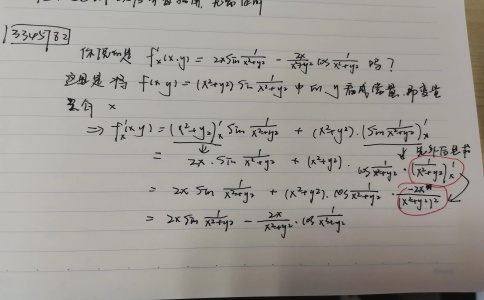 3345782
你说的是 f'ₓ(x.y) = 2x sin 1/(x²+y²) - 2x/(x²+y²) cos 1/(x²+y²) 吗?
这里是将 f(x y) = (x²+y²) sin 1/(x²+y²) 中的 y 看成常量, 即变量
只有 x
⇒ f'ₓ(x y) = (x²+y²)'ₓ sin 1/(x²+y²) + (x²+y²)·(sin 1/(x²+y²))'ₓ
= 2x·sin 1/(x²+y²) + (x²+y²)·cos 1/(x²+y²)·(1/(x²+y²))'ₓ
= 2x sin 1/(x²+y²) + (x²+y²)·cos 1/(x²+y²)·-2x/(x²+y²)²
= 2x sin 1/(x²+y²) - 2x/(x²+y²)·cos 1/(x²+y²)